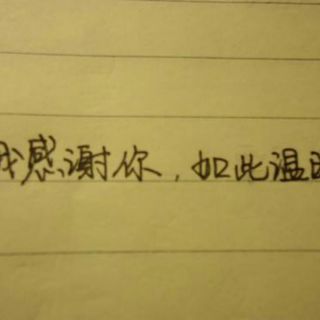 我感谢你，如此温